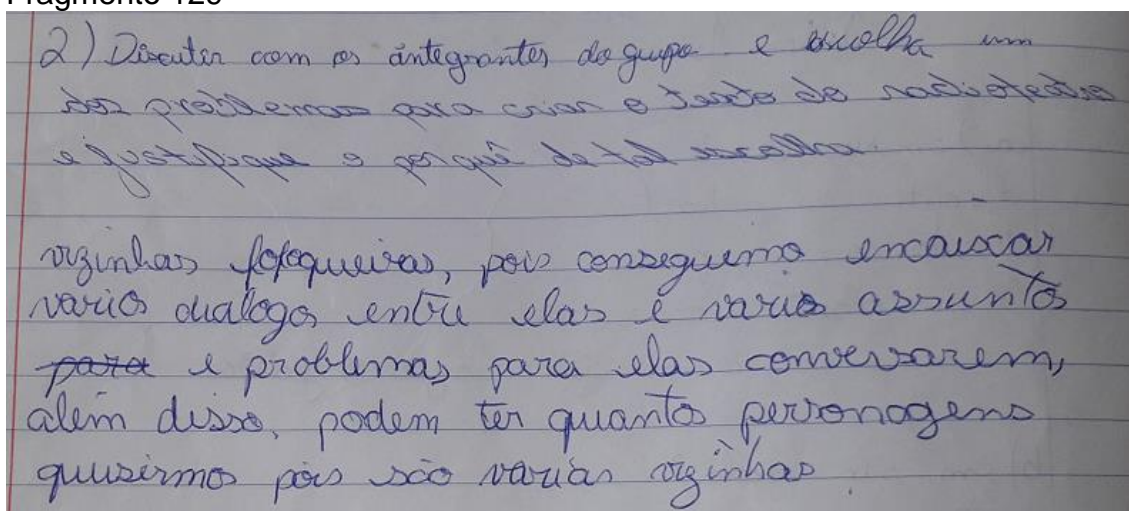 Fragmento 120
2) Discutir com os integrantes do grupo e escolha um
dos problemas para criar o texto do radioteatro
e justifique o porquê de tal escolha.
vizinhas fofoqueiras, pois conseguimo encaixar
varios dialogos entre elas e varios assuntos
para e problemas para elas conversarem,
além disso, podem ter quantos personagens
quisirmos pois são varias vizinhas